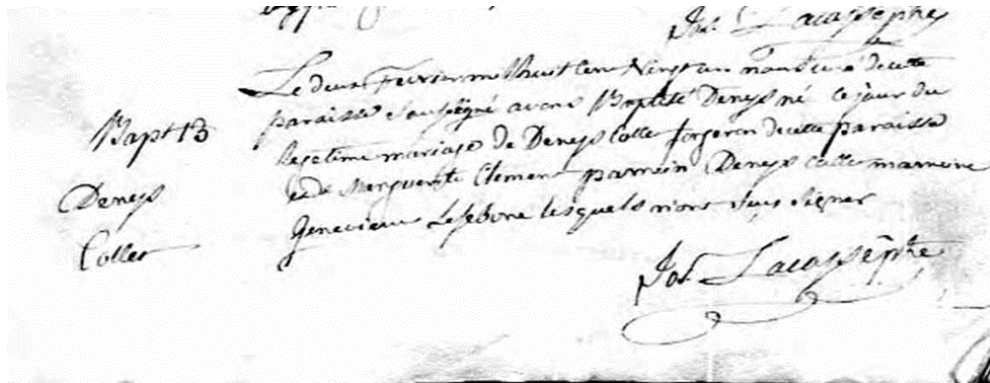 Jos. Lacasse ptre
Le deux Fevrier mil huit cent Vingt un nous curé de cette
Bapt 13 paroisse soussigné avons Baptisé Denys né ce jour du
legitime mariage de Denys Colle forgeron de cette paroisse
Denys et de Marguerite Clement parrein Denys colle marreine
Collet Genevieve Lefebvre lesquels n'ont sçus signer
Jos. Lacasse ptre